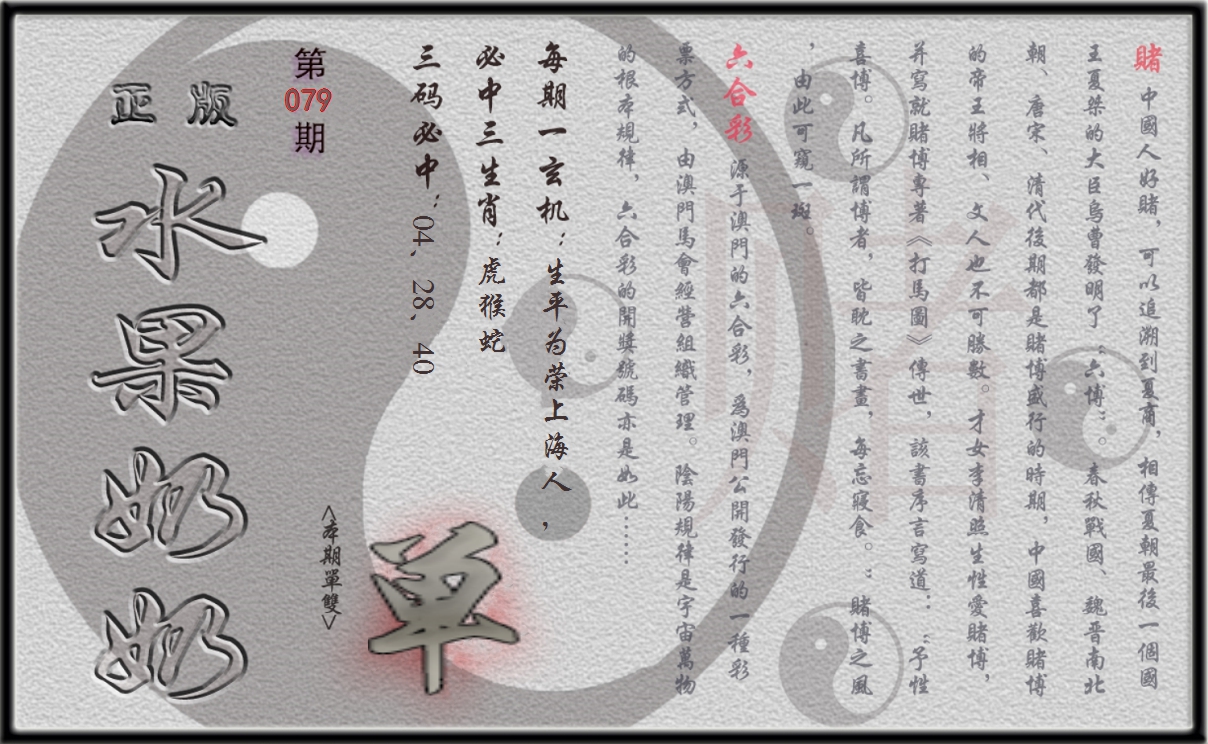 賭 中國人好賭，可以追溯到夏商，相傳夏朝最後一個國
王夏桀的大臣烏曹發明了“六博”。春秋戰國、魏晉南北
朝、唐宋、清代後期都是賭博盛行的時期，中國喜歡賭博
的帝王將相、文人也不可勝數。才女李清照生性愛賭博，
并寫就賭博專著《打馬圖》傳世，該書序言寫道：“予性
喜博。凡所謂博者，皆耽之書畫，每忘寢食。：賭博之風
，由此可窺一斑。
六合彩 源于澳門的六合彩，為澳門公開發行的一種彩
票方式，由澳門馬會經營組織管理。陰陽規律是宇宙萬物
的根本規律，六合彩的開獎號碼亦是如此……
每期一玄机：生平为荣上海人，
必中三生肖：虎猴蛇
三码必中：04、28、40
單
<本期單雙>
第
079
期
正版
水果奶奶
赌